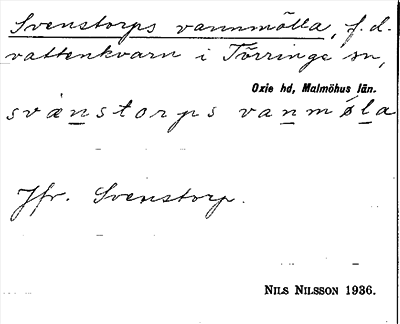 Svenstorps vannmölla, f. d.
vattenkvarn i Törringe sn,
Oxie hd, Malmöhus län.
svænstorps vanmøla
Jfr. Svenstorp.
NILS NILSSON 1936.